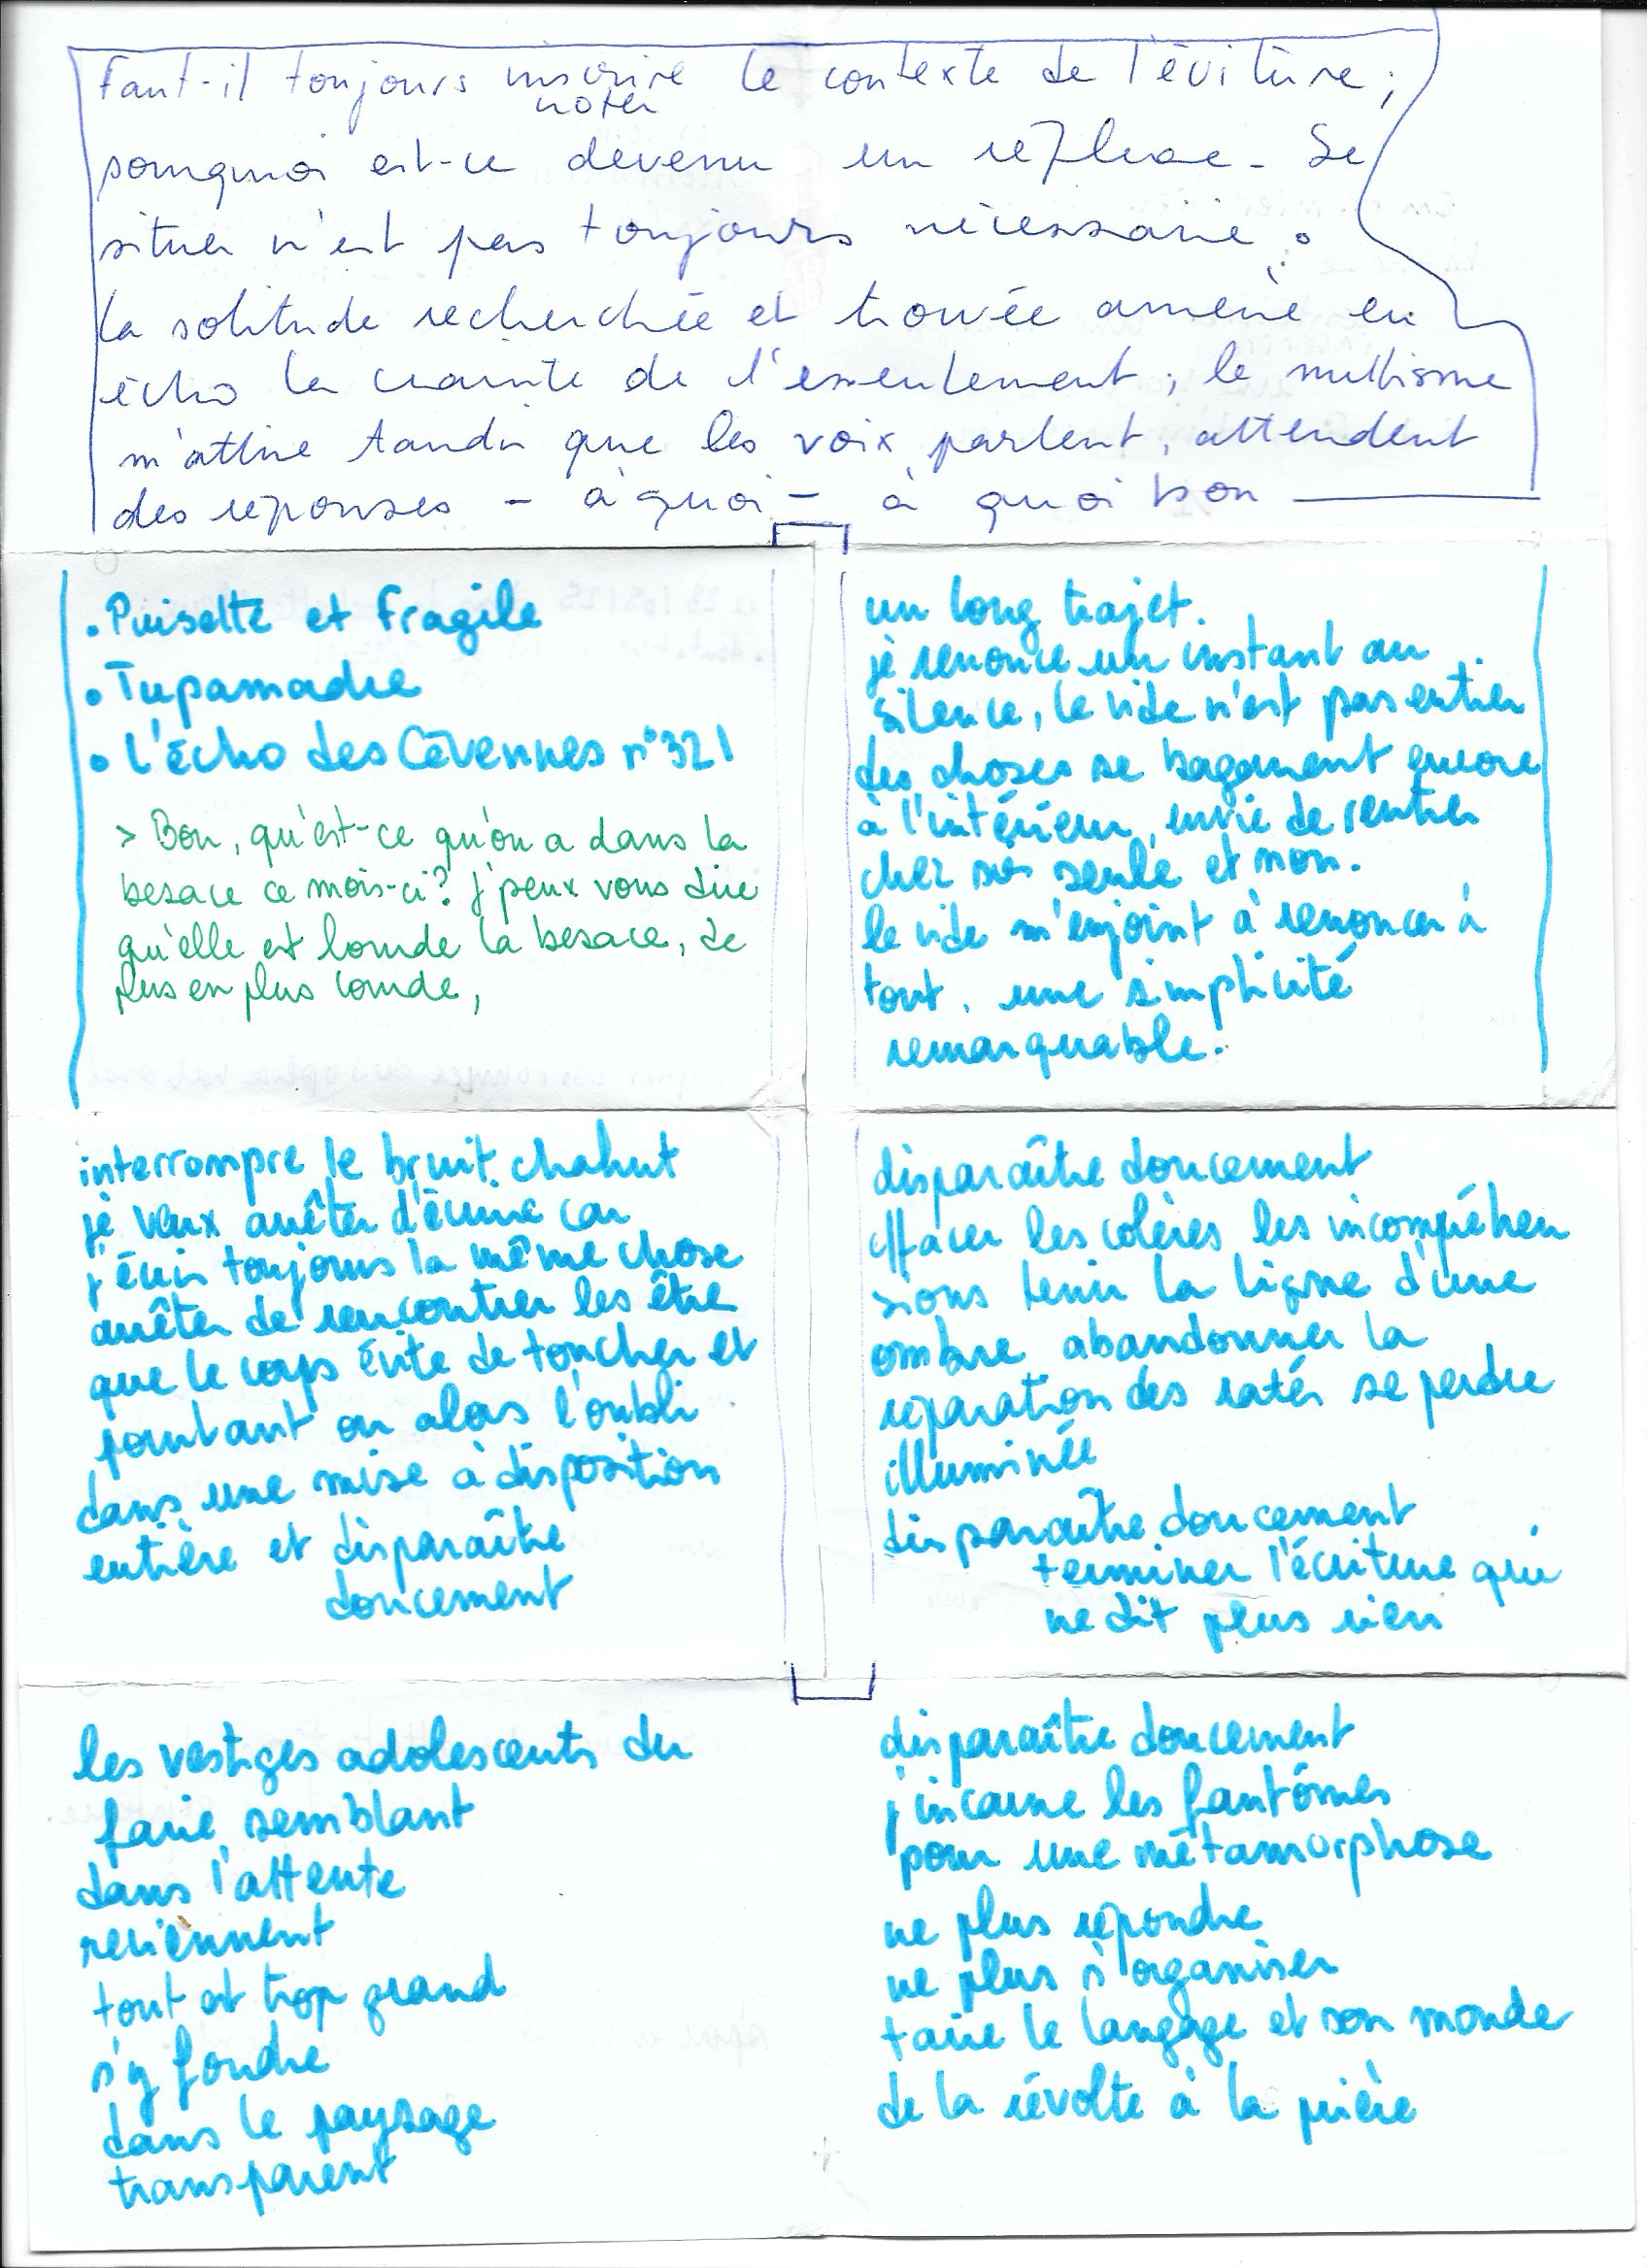 Faut-il toujours inscrire le contexte de l'écriture,
noter
pourquoi est-ce devenu un réflexe - Se
situer n'est pas toujours nécessaire.
La solitude recherchée et trouvée amène en
écho la crainte de l'esseulement, le mutisme
m'attire tandis que les voix parlent, attendent
des réponses - à quoi - à quoi bon
• Puisotte et Fragile
• Tupamadre
• L'écho des Cévennes n°321
> Bon, qu'est-ce qu'on a dans la
besace ce mois-ci? J'peux vous dire
qu'elle est lourde la besace, de
plus en plus lourde,
un long trajet.
je renonce un instant au
silence, le vide n'est pas entier
des choses se bagarrent encore
à l'intérieur, envie de rentrer
chez soi seule et non.
le vide m'enjoint à renoncer à
tout. une simplicité
remarquable.
interrompre le bruit, chahut
je veux arrêter d'écrire car
j'écris toujours la même chose
arrêter de rencontrer les être
que le corps évite de toucher et
pourtant ou alors l'oubli
dans une mise à disposition
entière et disparaître
doucement
disparaître doucement
effacer les colères les incompréhen
sions tenir la ligne d'une
ombre abandonner la
réparation des ratés se perdre
illuminée
disparaître doucement
terminer l'écriture qui
ne dit plus rien
les vestiges adolescents du
faire semblant
dans l'attente
reviennent
tout est trop grand
s'y fondre
dans le paysage
transparent
disparaître doucement
j'incarne les fantômes
pour une métamorphose
ne plus répondre
ne plus s'organiser
taire le langage et son monde
de la révolte à la prière